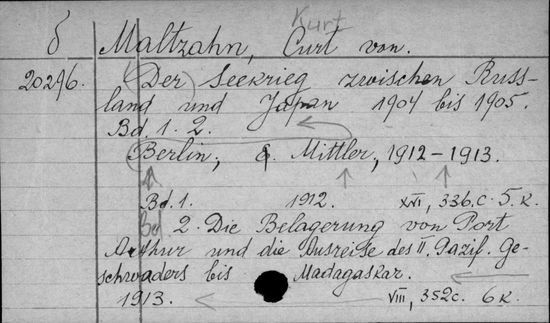 Kurt
δ Maltzahn, Curt von.
20296. (Der) Seekrieg zwischen Russ-
land und Japan 1904 bis 1905.
Bd. 1. 2.
(Berlin, Mittler, 1912-1913.
Bd. 1. 1912. XVI, 336.C. 5. K.
Bd 2. Die Belagerung von Port
Arthur und die Ausreise des II. Pazif. Ge-
schwaders bis Madagaskar.
1913. VIII, 352c. 6 K.